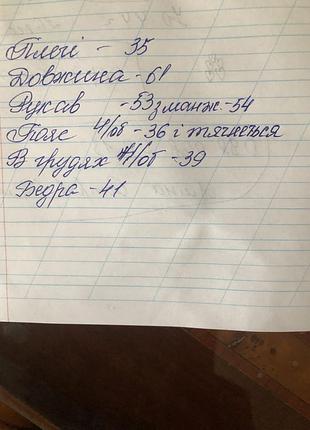 Плечі - 35
Довжина - 61
Рукав - 53 з манж - 54
Пояс п/об - 36 і тягнеться
В грудях п/об - 39
Бедра - 41